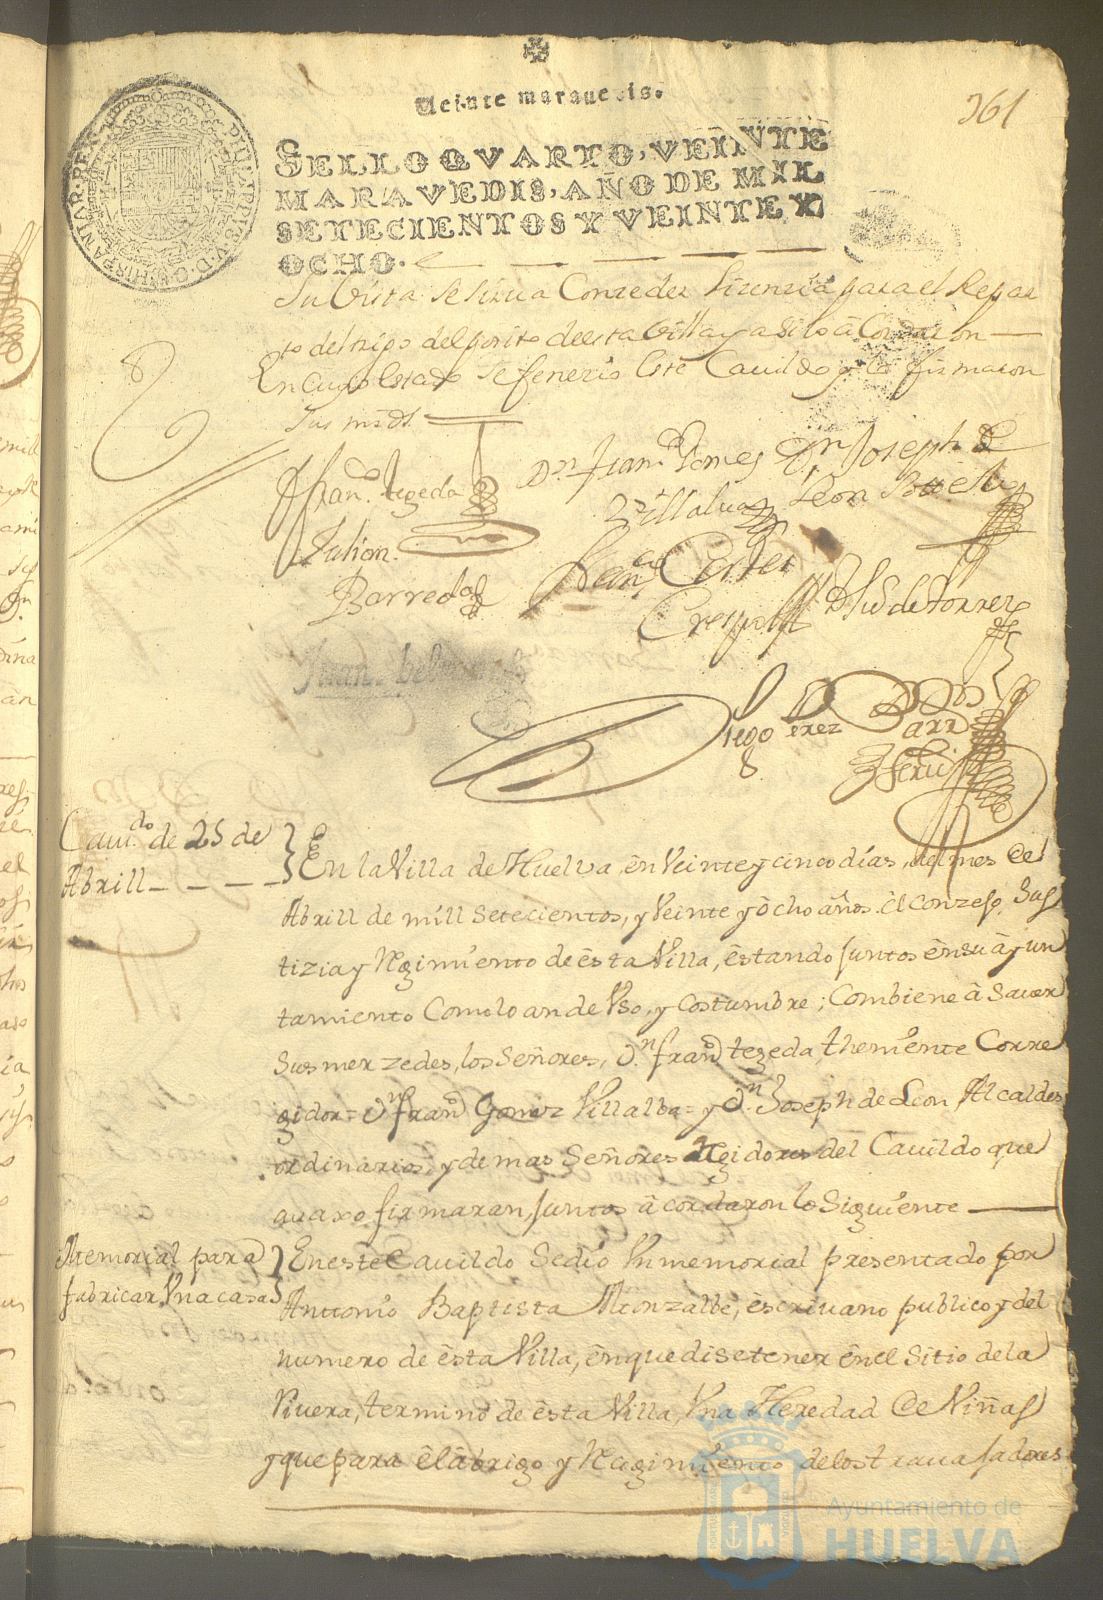 Veinte maravedis.
361
SELLO QVARTO, VEINTE
MARAVEDIS, AÑO DE MIL
SETECIENTOS Y VEINTE Y
OCHO.
PHILIPPVS V D G HISPANIAR REX
Su Vista Se sirva Conzeder lizenzia para el Repar
to del trigo del posito de esta Villa y asi lo acordaron
En Cuyo estado Se fenerio este Cavildo y lo firmaron
Sus mrds
Franco. tegeda
Dn. Franco. Gomez
Villalva
Dn Joseph de
Leon
Julian
Barreda
Franco Cortes
Crespo
de torres
Juan
Diego Perez
Cavildo de 25 de
Abrill
En la Villa de Huelva, ên Veinte y cinco días, del mes de
Abrill de mill Setecientos, y Veinte y ôcho años. el Conzejo, Jus
tizia y Regimiento de êsta Villa, êstando Juntos ên su âyun
tamiento Como lo an de Vso, y Costumbre; Combiene â Saver
Sus merzedes, los Señores, Dn. franco tegeda, theniente Corre
gidor = Dn franco Gomez Villalba = y Dn. Joseph de Leon, Alcaldes
ordinarios, y demas Señores Regidores del Cavildo que
avaxo firmaran, Juntos âcordaron lo Siguiente
Memorial para
fabricar Vna casa
En este Cavildo Se dio Vn memorial presentado por
Anttonio Baptista Monzalbe, êscrivano publico y del
numero de êsta Villa, ên que dise tener ên el Sitio de la
Rivera, termino de êsta Villa, Vna Heredad de Viñas
y que para êl âbrigo y Rugimiento de los travajadores
Ayuntamiento de
HUELVA